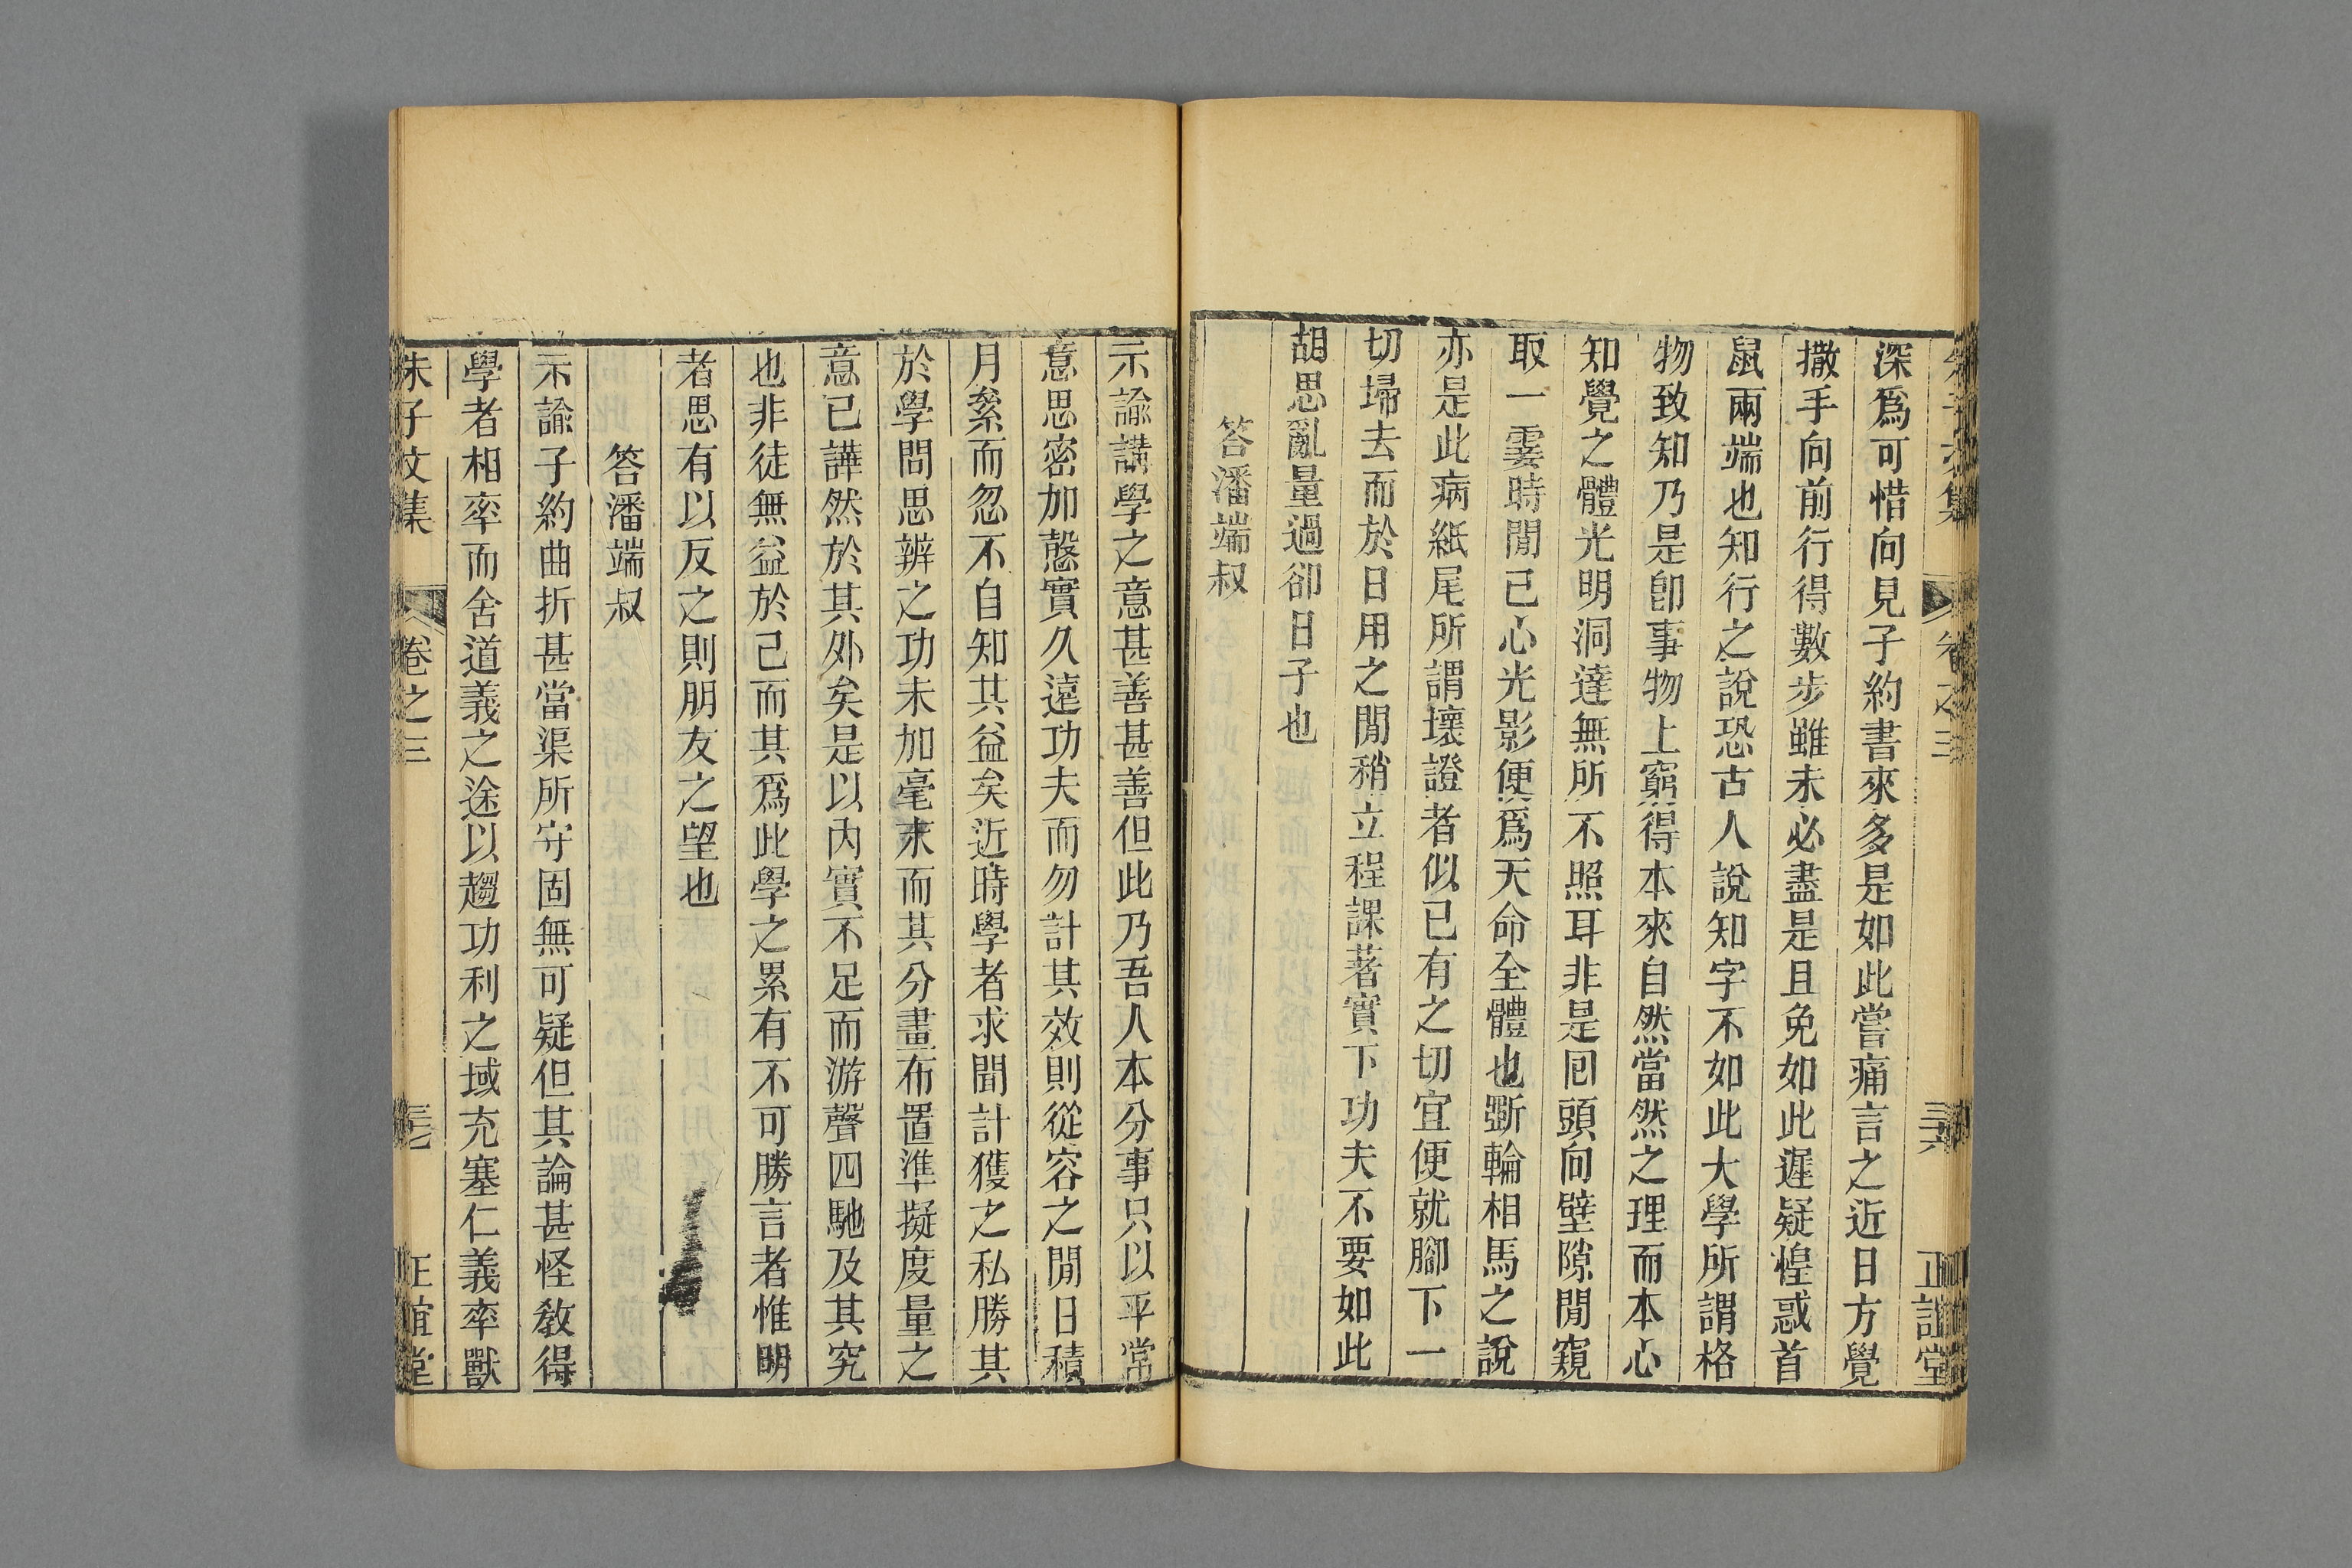 深爲可惜向見子約書來多是如此嘗痛言之近日方覺
撒手向前行得數步雖未必盡是且免如此遲疑惶惑首
鼠兩端也知行之說恐古人說知字不如此大學所謂格
物致知乃是卽事物上窮得本來自然當然之理而本心
知覺之體光明洞達無所不照耳非是囘頭向壁隙閒窺
取一霎時閒己心光影便爲天命全體也斲輪相馬之說
亦是此病紙尾所謂壞證者似已有之切宜便就腳下一
切埽去而於日用之閒稍立程課著實下功夫不要如此
胡思亂量過卻日子也
答潘端叔
示諭講學之意甚善甚善但此乃吾人本分事只以平常
意思密加慤實久遠功夫而勿計其效則從容之閒日積
月絫而忽不自知其益矣近時學者求聞計獲之私勝其
於學問思辨之功未加毫末而其分畫布置準擬度量之
意已譁然於其外矣是以內實不足而游聲四馳及其究
也非徒無益於己而其爲此學之累有不可勝言者惟明
者思有以反之則朋友之望也
答潘端叔
示諭子約曲折甚當渠所守固無可疑但其論甚怪敎得
學者相率而舍道義之途以趨功利之域充塞仁義率獸
朱子文集 卷之三 三七 正誼堂